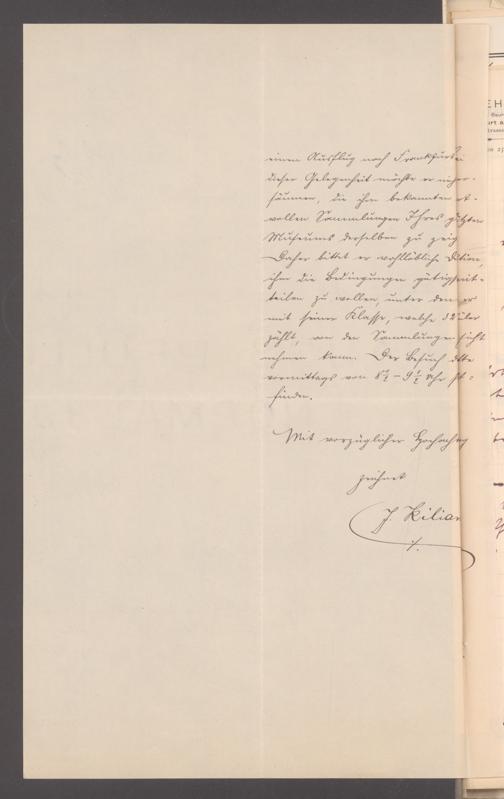 einen Ausflug nach Frankfurt. Bei
dieser Gelegenheit möchte er nicht ver-
säumen, die ihm bekannten
vollen Sammlungen Ihres
Museums derselben zu zeig
Daher bittet er wohllöbliche Direktion,
ihm die Bedingungen gütigst mit-
teilen zu wollen, unter denen er
mit seiner Klasse, welche 32
zählt, an den Sammlungen
nehmen kann. Der Besuch
vormittags von 8½ – 9½ Uhr st-
finden.
Mit vorzüglicher Hochachtung
zeichnet
J. Kilian